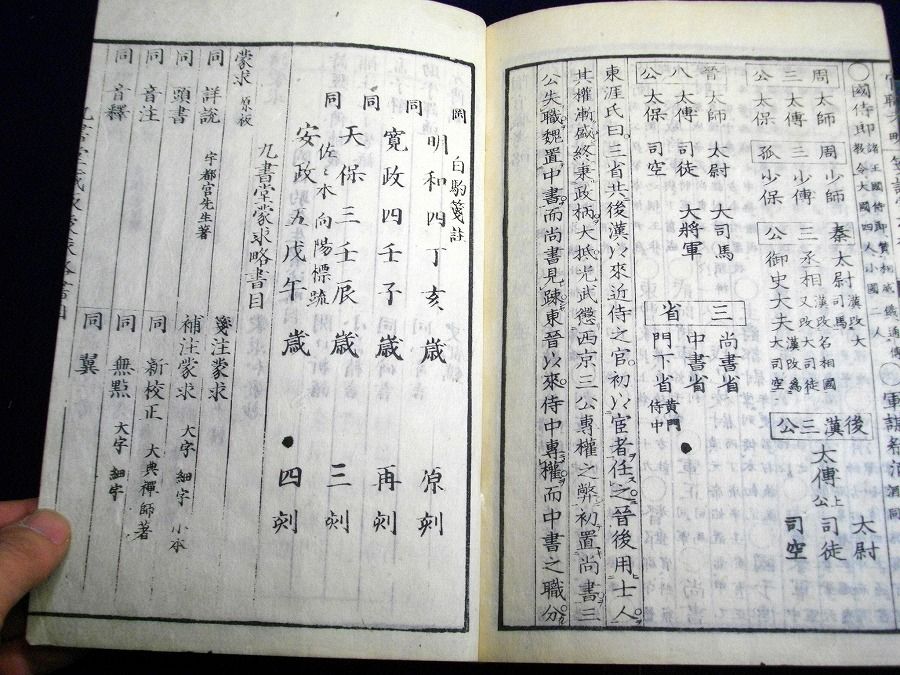 周 三公 太師 太傅 太保
周 三孤 少師 少傅 少保
秦 三公 太尉 漢改大司馬
丞相 又漢改名相國 漢改大司徒
御史大夫 漢改為大司空
後漢三公 太傅 上公
太尉 司徒 司空
晉八公 太師 太傅 太保
太尉 司徒 司空
大司馬 大將軍
三省 尚書省 中書省 門下省 黃門侍中
東涯氏曰三省共後漢以來近侍之官初以宦者任之晉後用士人
其權漸盛終秉政柄大抵光武懲西京三公專權之弊初置尚書三
公失職魏置中書而尚書見踈東晉以來侍中專權而中書之職分
岡 白駒箋註
同 明和四丁亥歲 原刻
同 寬政四壬子歲 再刻
同 天保三壬辰歲 三刻
佐々木向陽標疏
安政五戊午歲 四刻
九書堂蒙求略書目
蒙求 原板
箋注蒙求
同 詳說 宇都宮先生著
補注蒙求 大字 細字 小本
同 頭書
同 新校正 大典禪師著
同 音注
同 無點 大字 細字
同 音釋
同 翼